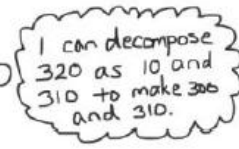 I can decompose
320 as 10 and
310 to make 300
and 310.